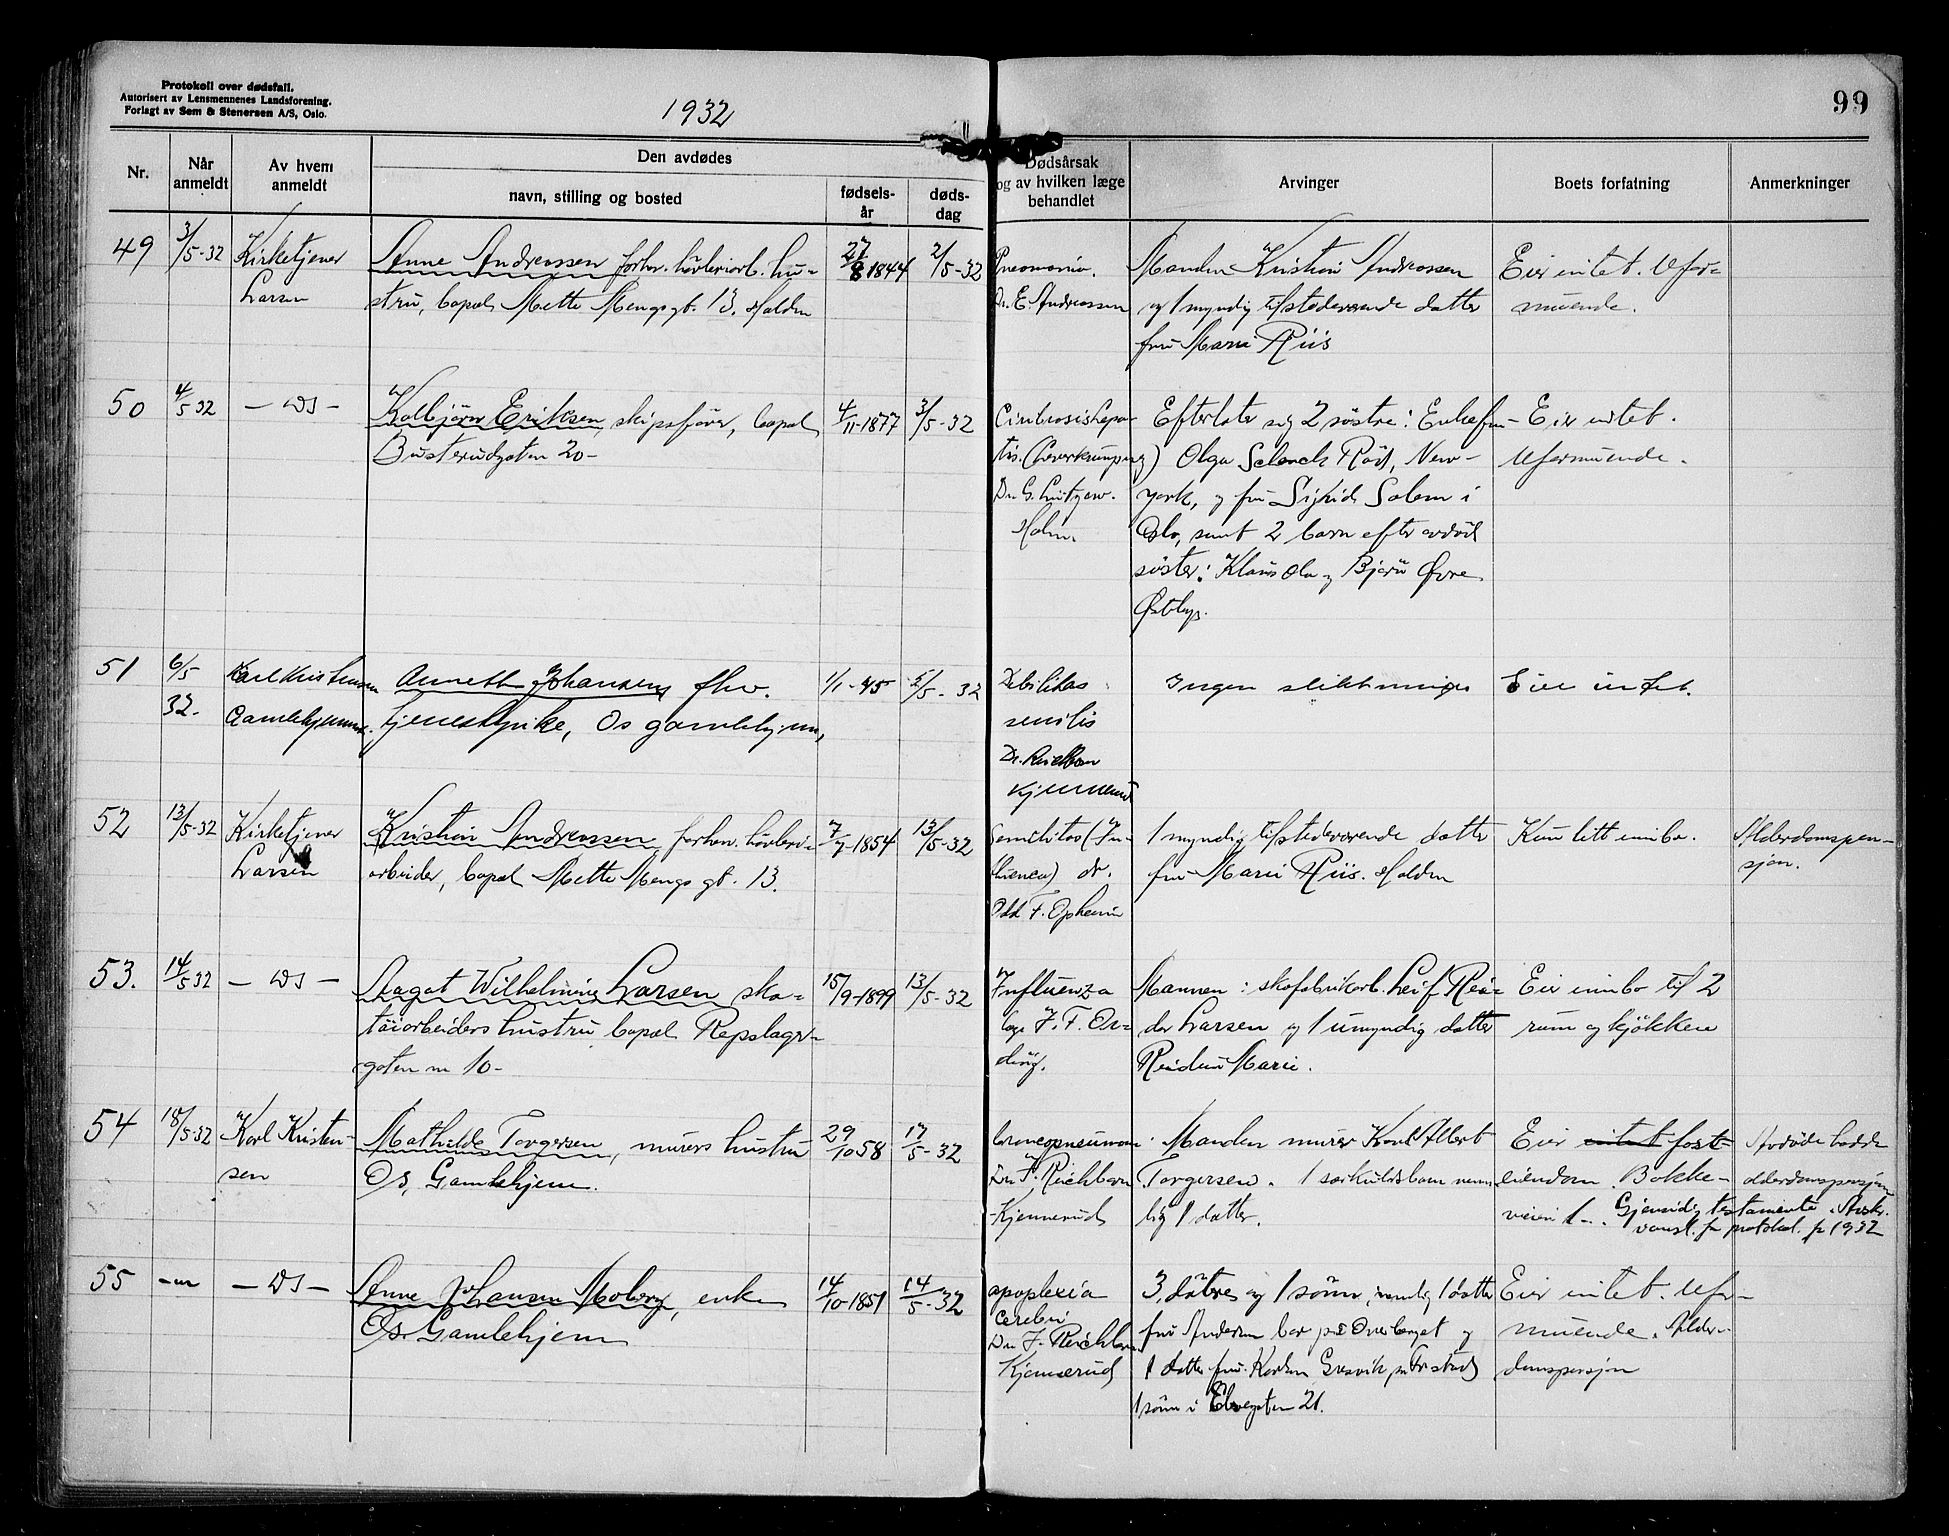 Protokoll over dødsfall.
Autorisert av Lensmennenes Landsforening.
Forlagt av Sem & Stenersen A/S, Oslo.
1932
99
Nr.
Når anmeldt
Av hvem anmeldt
Den avdødes
navn, stilling og bosted
fødsels-år
døds-dag
Dødsårsak
og av hvilken læge
behandlet
Arvinger
Boets forfatning
Anmerkninger
49
3/5-32
Kirketjener
Larsen
Anne Andreassen forhv. høvleriarb. hu-
stru, bopæl Mette Mengs gt. 13. Halden
27/8 1844
2/5-32
Pneomonia.
Dr. E. Andreassen
Manden Kristian Andreassen
og 1 myndig tilstedeværende datter
fru Marie Riis
Eier intet. Ufor-
muende.
50
4/5 32
- Ds -
Kolbjørn Eriksen, skipsfører, bopæl
Busterudgaten 20-
4/11-1877
3/5-32
tis. (Leverkrumping)
Dr. G. Lützow.
Holm.
Efterlater sig 2 søstre: Enkefru
Olga Rød, New-
york, og fru Sigrid Salem i
Oslo, samt 2 barn efter avdød
søster: Klaus Ola og Bjørn Øvre
Østbye.
Eier intet.
Uformuende.
51
6/5
32.
Karl Kristensen
Gamlehjemmet.
Anneth Johansen, fhv.
tjenestepike, Os gamlehjem,
1/1-45
5/5-32
Debilitas
senilis
Dr. Reichborn
Kjennerud
Ingen slektninger
Eier intet.
52
13/5-32
Kirketjener
Larsen
Kristian Andreassen, forhen. høvleri-
arbeider, bopæl Mette Mengs gt. 13.
7/7-1854
13/5-32
Senilitas (In-
fluenca) dr.
Odd F. Opheim
1 myndig tilstedeværende datter
fru Marie Riis. Halden
Kun litt innbo.
Alderdomspen-
sjon.
53.
14/5 32
- Ds -
Aagot Wilhelmine Larsen sko-
tøiarbeiders hustru bopæl Repslager-
gaten nr 10-
15/9-1899
13/5-32
Influenza
læge J. F. Or-
ding.
Mannen: skofabrikarb. Leif Rei-
der Larsen og 1 umyndig datter
Reidun Marie.
Eier innbo til 2
rum og kjøkken
54
18/5-32
Karl Kristen-
sen
Mathilde Torgersen, murers hustru
Os, Gamlehjem.
29/10 58
17/5-32
Dr. F. Reichborn
Kjennerud
Manden murer Karl Albert
Torgersen. 1 særkuldsbarn nem-
lig 1 datter.
Eier intet fast
eiendom. Bakke-
veien 1-. Gjensidig testamente. Avskr.
Avdøde hadde
alderdomspensjon
protokol. for 1932
55
- Ds -
Anne Johansen Moberg, enke
Os. Gamlehjem
14/10-1851
14/5-32
apoplexia
cerebri
Dr. F. Reichborn
Kjennerud
3 døtre og 1 sønn, nemlig 1 datter
fru Andersen bor på Overberget og
1 datter fru Gresvik, pr Fr.stad
1 sønn i Elvegaten 21.
Eier intet. Ufor-
muende. Alder-
domspensjon